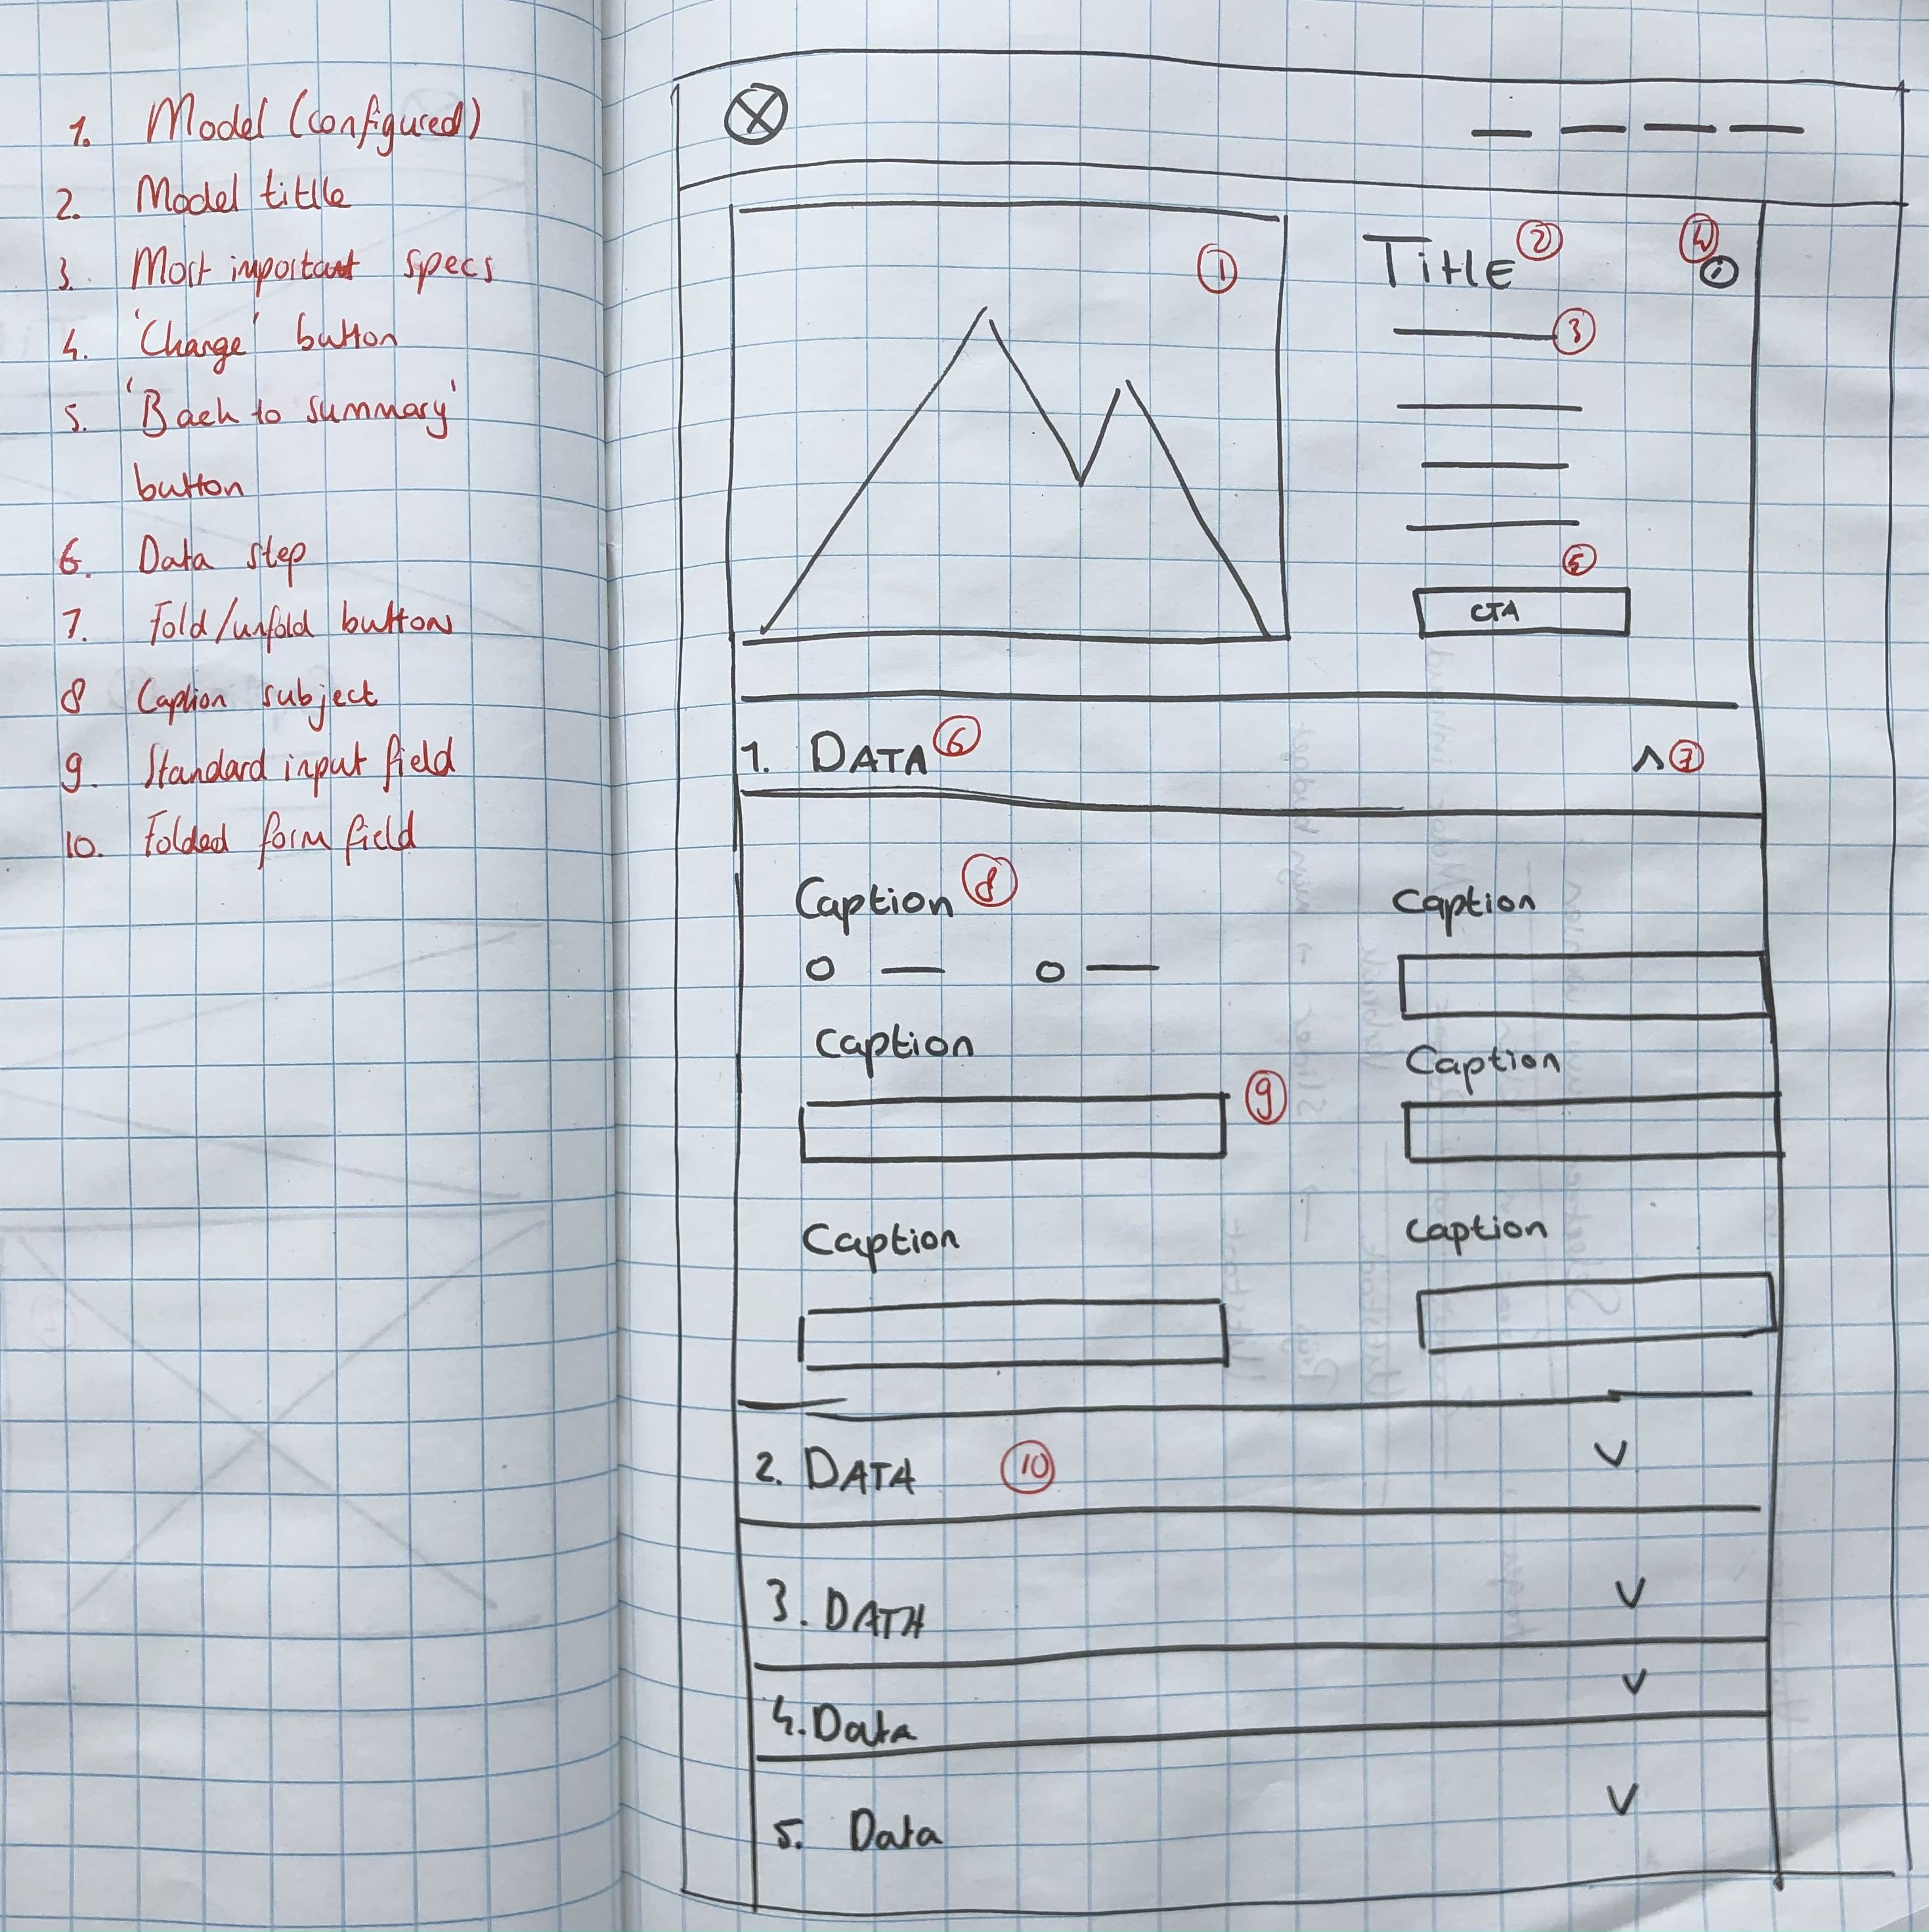 1. Model (configured)
2. Model titlle
3. Most important specs
4. 'Change' button
5. 'Back to summary'
button
6. Data step
7. Fold/unfold button
8 Caption subject
9. Standard input field
10. Folded form field
Title 2 4
i
1
3
5
CTA
1. DATA 6 7
Caption 8 Caption
Caption Caption
9
Caption Caption
2. DATA 10
3. DATA
4. Data
5. Data